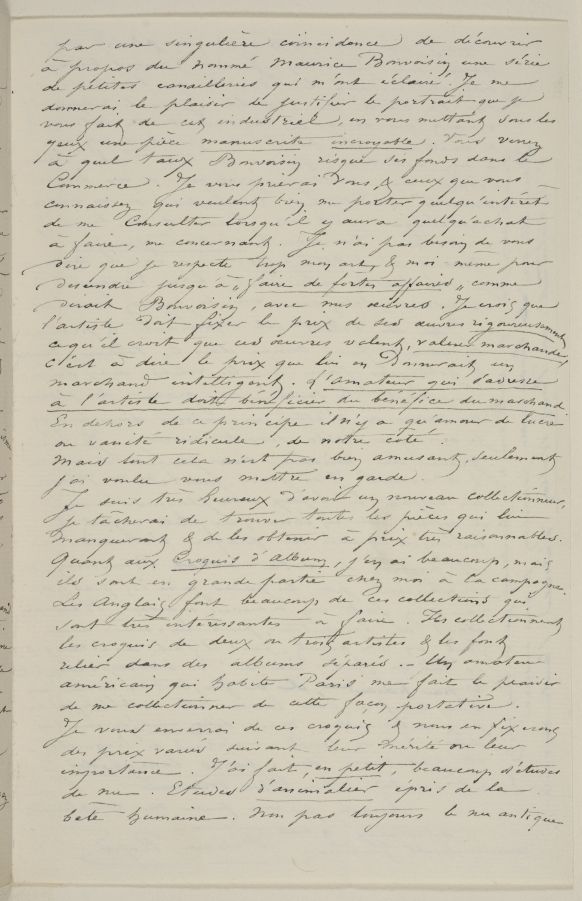 par une singulière coincidence de découvrir
à propos du nommé Maurice Bonvoisin une série
de petites canailleries qui m'ont éclairé. Je me
donnerai le plaisir de justifier le portrait que je
vous fait de cet industriel, en vous mettant sous les
yeux une pièce manuscrite incroyable. Vous verrez
à quel taux Bonvoisin risque ses fonds dans le
Commerce. Je vous prierai Vous, & ceux que vous
connaissez qui veulent bien me porter quelqu'intérêt
de me Consulter lorsqu'il y aura quelqu'achat
à faire, me concernant. Je n'ai pas besoin de vous
dire que je respecte trop mon art, & moi-même pour
descendre jusqu'à "faire de fortes affaires" comme
dirait Bonvoisin, avec mes œuvres. Je crois que
l'artiste doit fixer le prix de ses œuvres rigoureusement
ce qu'il croit que ces œuvres valent, valeur marchande,
c'est à dire le prix que lui en donnerait un
marchand intelligent. L'amateur qui s'adresse
à l'artiste doit bénéficier du bénéfice du marchand.
En dehors de ce principe il n'y a qu'amour de lucre
ou vanité ridicule, de notre côté.
Mais tout cela n'est pas bien amusant, seulement
j'ai voulu vous mettre en garde.
Je suis très heureux d'avoir un nouveau collectionneur,
je tâcherai de trouver toutes les pièces qui lui
manqueront & de les obtenir à prix très raisonnables.
Quant aux Croquis d'album, j'en ai beaucoup, mais
ils sont en grande partie chez moi à la campagne.
Les Anglais font beaucoup de ces collections qui
sont très intéressantes à faire. Ils collectionnent
les croquis de deux ou trois artistes & les font
relier dans des albums séparés. – Un amateur
américain qui habite Paris me fait le plaisir
de me collectionner de cette façon portative.
Je vous enverrai de ces croquis & nous en fixerons
des prix variés suivant leur mérite ou leur
importance. J'ai fait, en petit, beaucoup d'études
de nu. Etudes d'animalier épris de la
bête humaine. Non pas toujours le nu antique